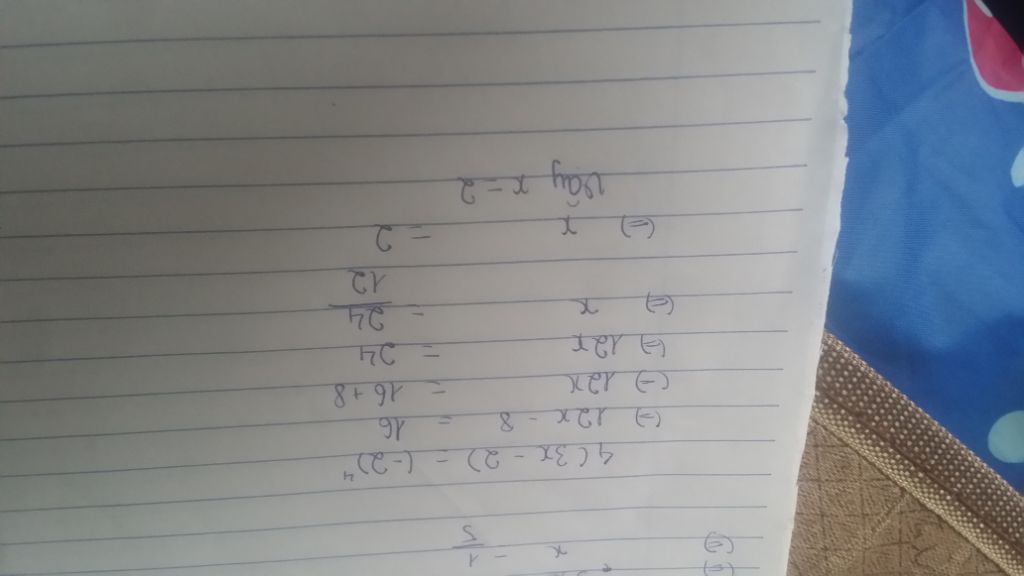 (=)
(=) x = \frac{-1}{5}
4(3x - 2) = (-2)^4
(=) 12x - 8 = 16
(=) 12x = 16 + 8
(=) 12x = 24
(=) x = \frac{24}{12}
(=) x = 2
Vậy x = 2